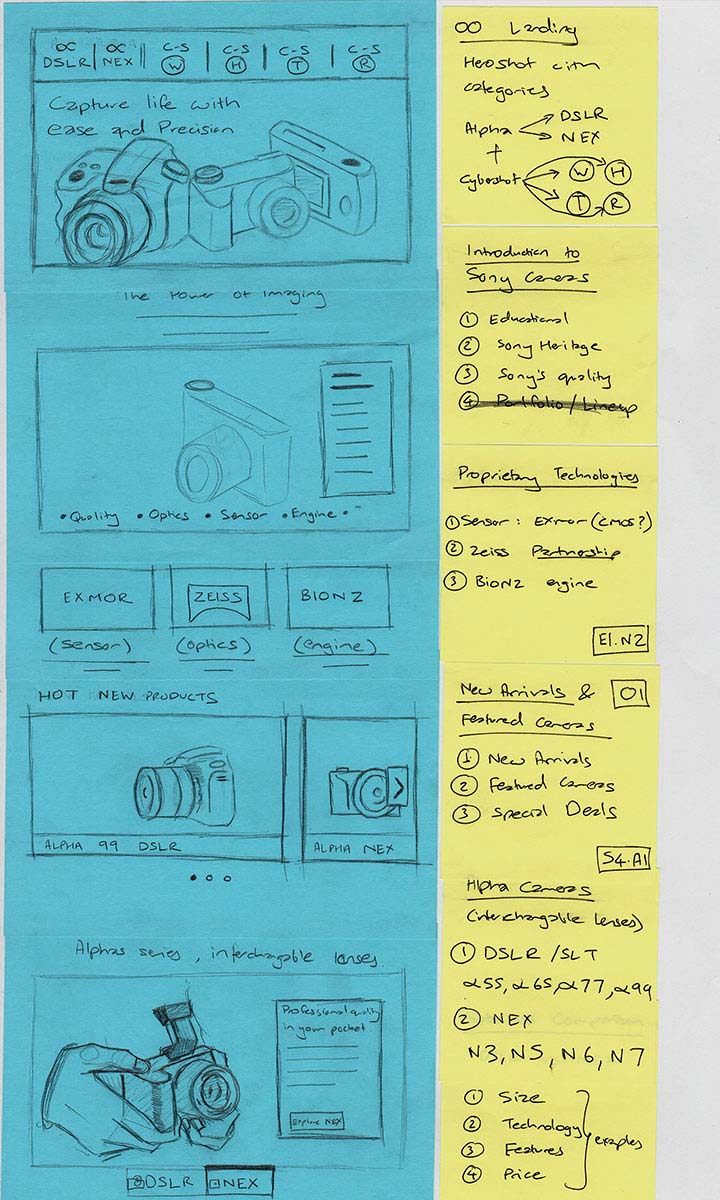 ∝ DSLR | ∝ NEX || C-S W | C-S H | C-S T | C-S R
Capture life with
ease and Precision
The Power of Imaging
• Quality • Optics • Sensor • Engine •
EXMOR
ZEISS
BIONZ
(sensor)
(optics)
(engine)
HOT NEW PRODUCTS
ALPHA 99 DSLR
>
ALPHA NEX
Alphas series, interchagable lenses.
Professional quality
in your pocket
Explore NEX
DSLR
NEX
00 Landing
Heroshot with
categories
Alpha DSLR
NEX
+
Cybershot W H
T R
Introduction to
Sony Cameras
1 Educational
2 Sony Heritage
3 Sony's quality
4 Portfolio / Lineup
Proprietary Technologies
1 Sensor: EXmor (CMOS?)
2 Zeiss Partnership
3 BionZ engine
E1.N2
New Arrivals & 01
Featured Cameras
1 New Arrivals
2 Featured Cameras
3 Special Deals
S4.A1
Alpha Cameras
(interchangable lenses)
1 DSLR / SLT
∝55, ∝65, ∝77, ∝99
2 NEX
N3, N5, N6, N7
1 Size
2 Technology
3 Features
4 Price
examples